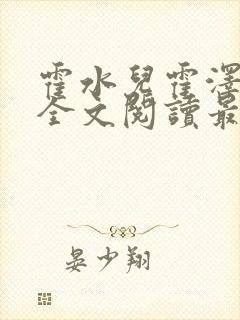 霍水兒霍澤
全文閱讀最
晏少翔